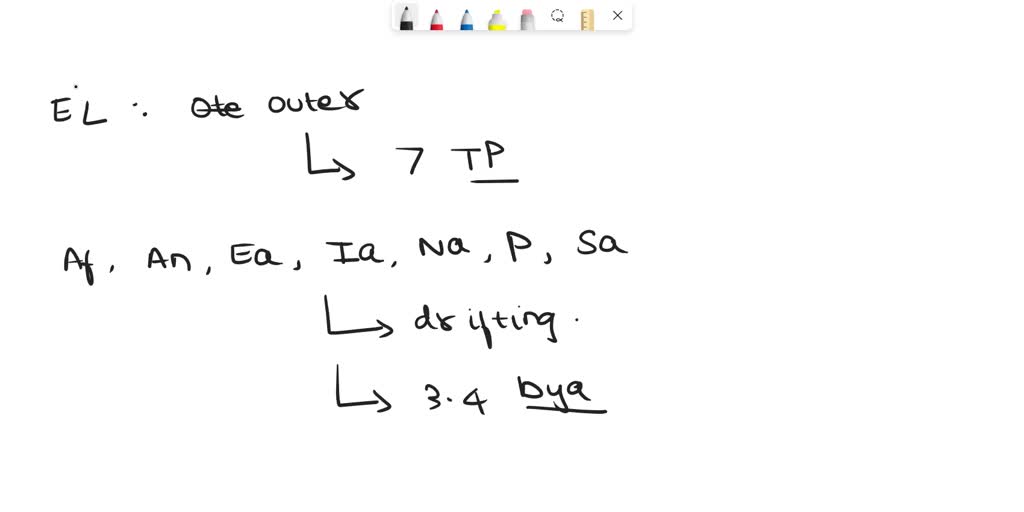 EL : Ote outer
↳ 7 TP
Af, An, Ea, Ia, Na, P, Sa
↳ drifting.
↳ 3.4 bya